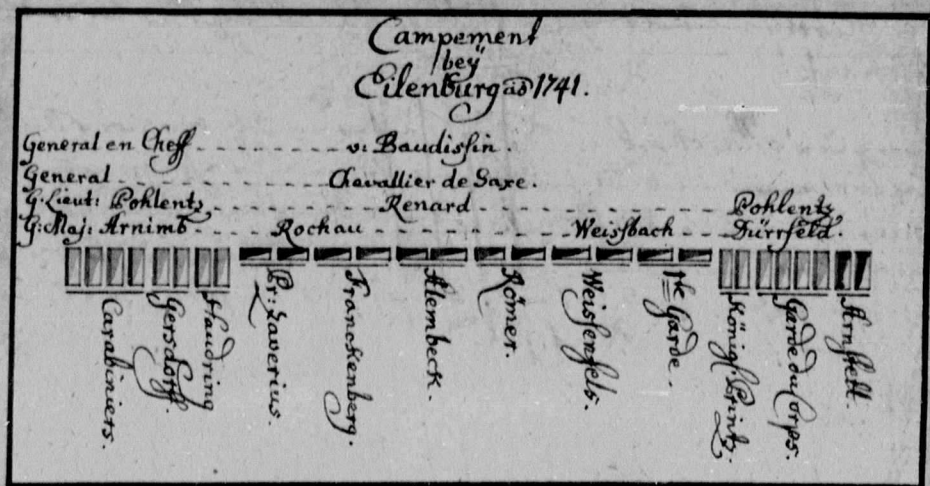 Campement
bey
Eilenburg aõ 1741.
General en Cheff - - - - - - - - v: Baudissin
General - - - - - - - - - - - Chevallier de Saxe.
G: Lieut: Pohlentz - - - - - - - - - Renard - - - - - - - - - - - - - Pohlentz
G: Maj: Arnimb - - - - Rochau - - - - - - - - - - Weissbach - - - Dürrfeld.
Carabiniers.
Gersdorff.
Haudring
Pr: Xaverius.
Franckenberg.
Alembeck.
Römer.
Weissenfels.
Garde.
Königl: Printz.
Garde du Corps.
Arnstett.